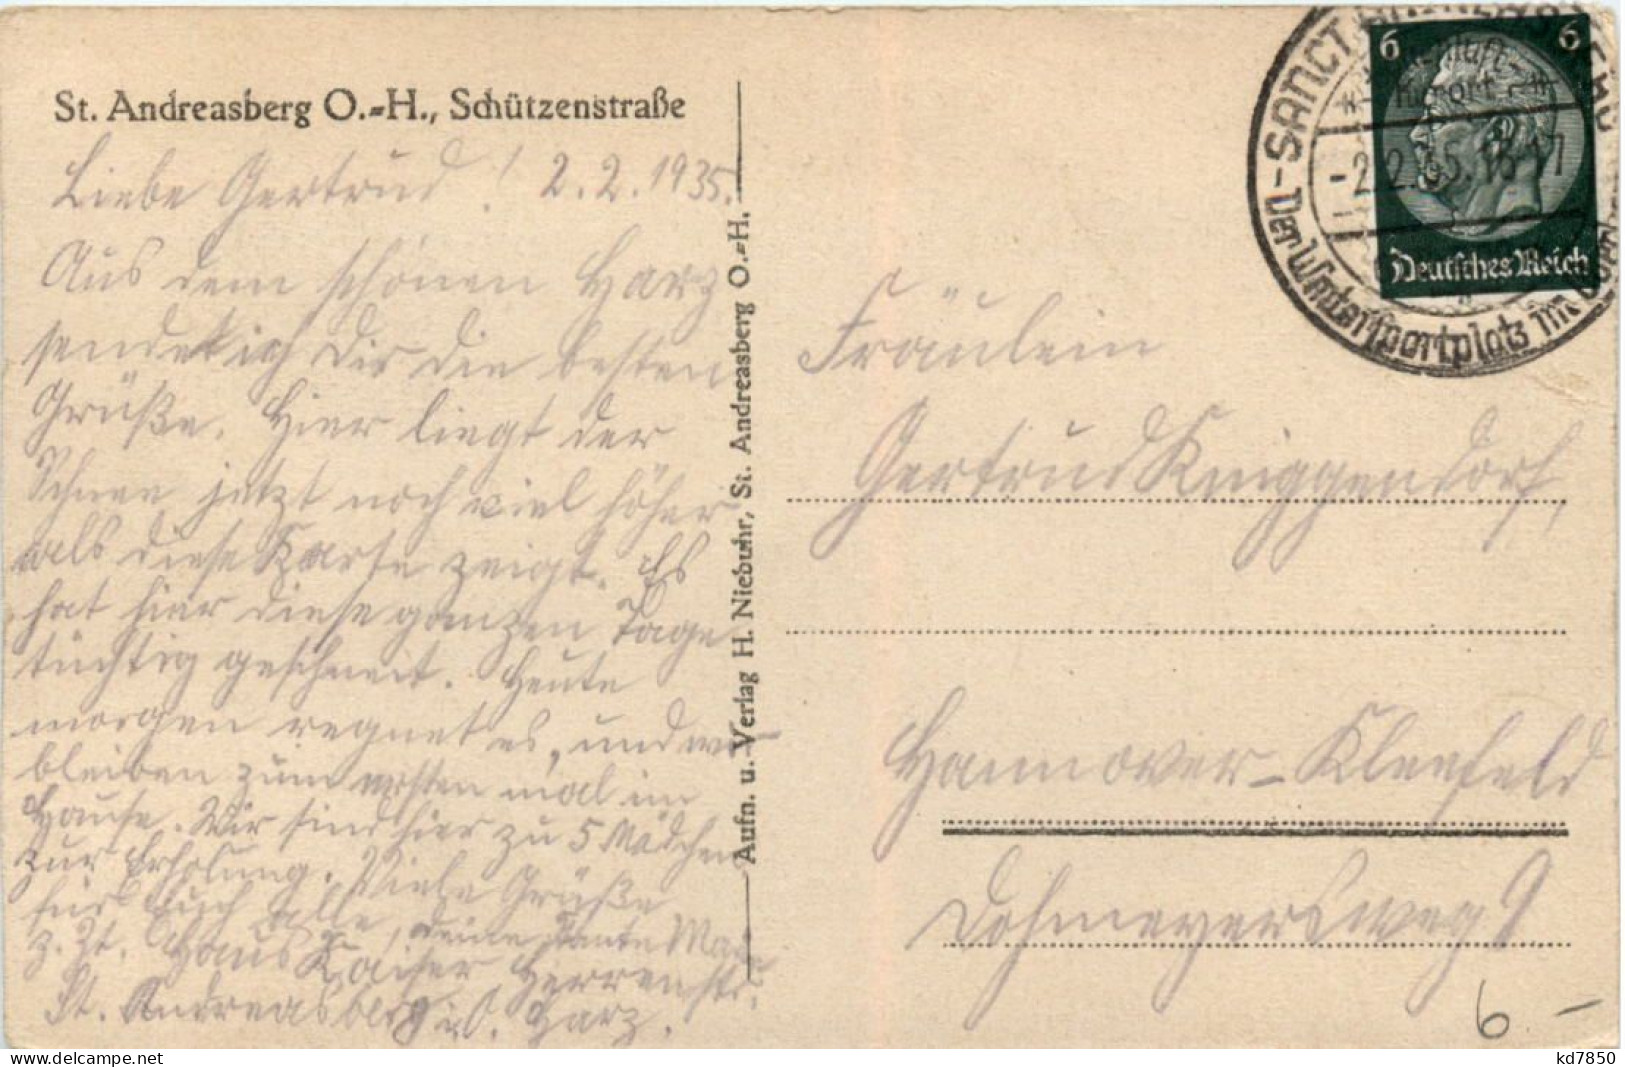 St. Andreasberg O.=H., Schützenstraße
Liebe Gertrud! 2.2.1935.
Aus dem schönen Harz
sendet ich Dir die besten
Grüße. Hier liegt der
Schnee jetzt noch viel höher
als diese Karte zeigt. Es
hat hier diese ganzen Tage
tüchtig geschneit. Heute
morgen regnet es, und wir
bleiben zum ersten mal im
Hause. Wir sind hier zu 5 Mädchen
zur Erholung. Viele Grüße
für Euch alle, deine Tante
z. Zt. Haus Kaiser Herrenstr.
St. Andreasberg i. O. Harz.
Aufn. u. Verlag H. Niebuhr, St. Andreasberg O.=H.
6 6
Deutsches Reich
SANCT
Kurort
-2.2.35.16-17
Der Wintersportplatz im
Fräulein
Gertrud Kniggendorf,
Hannover-Kleefeld
Dohmeyersweg 9
6 –
kd7850